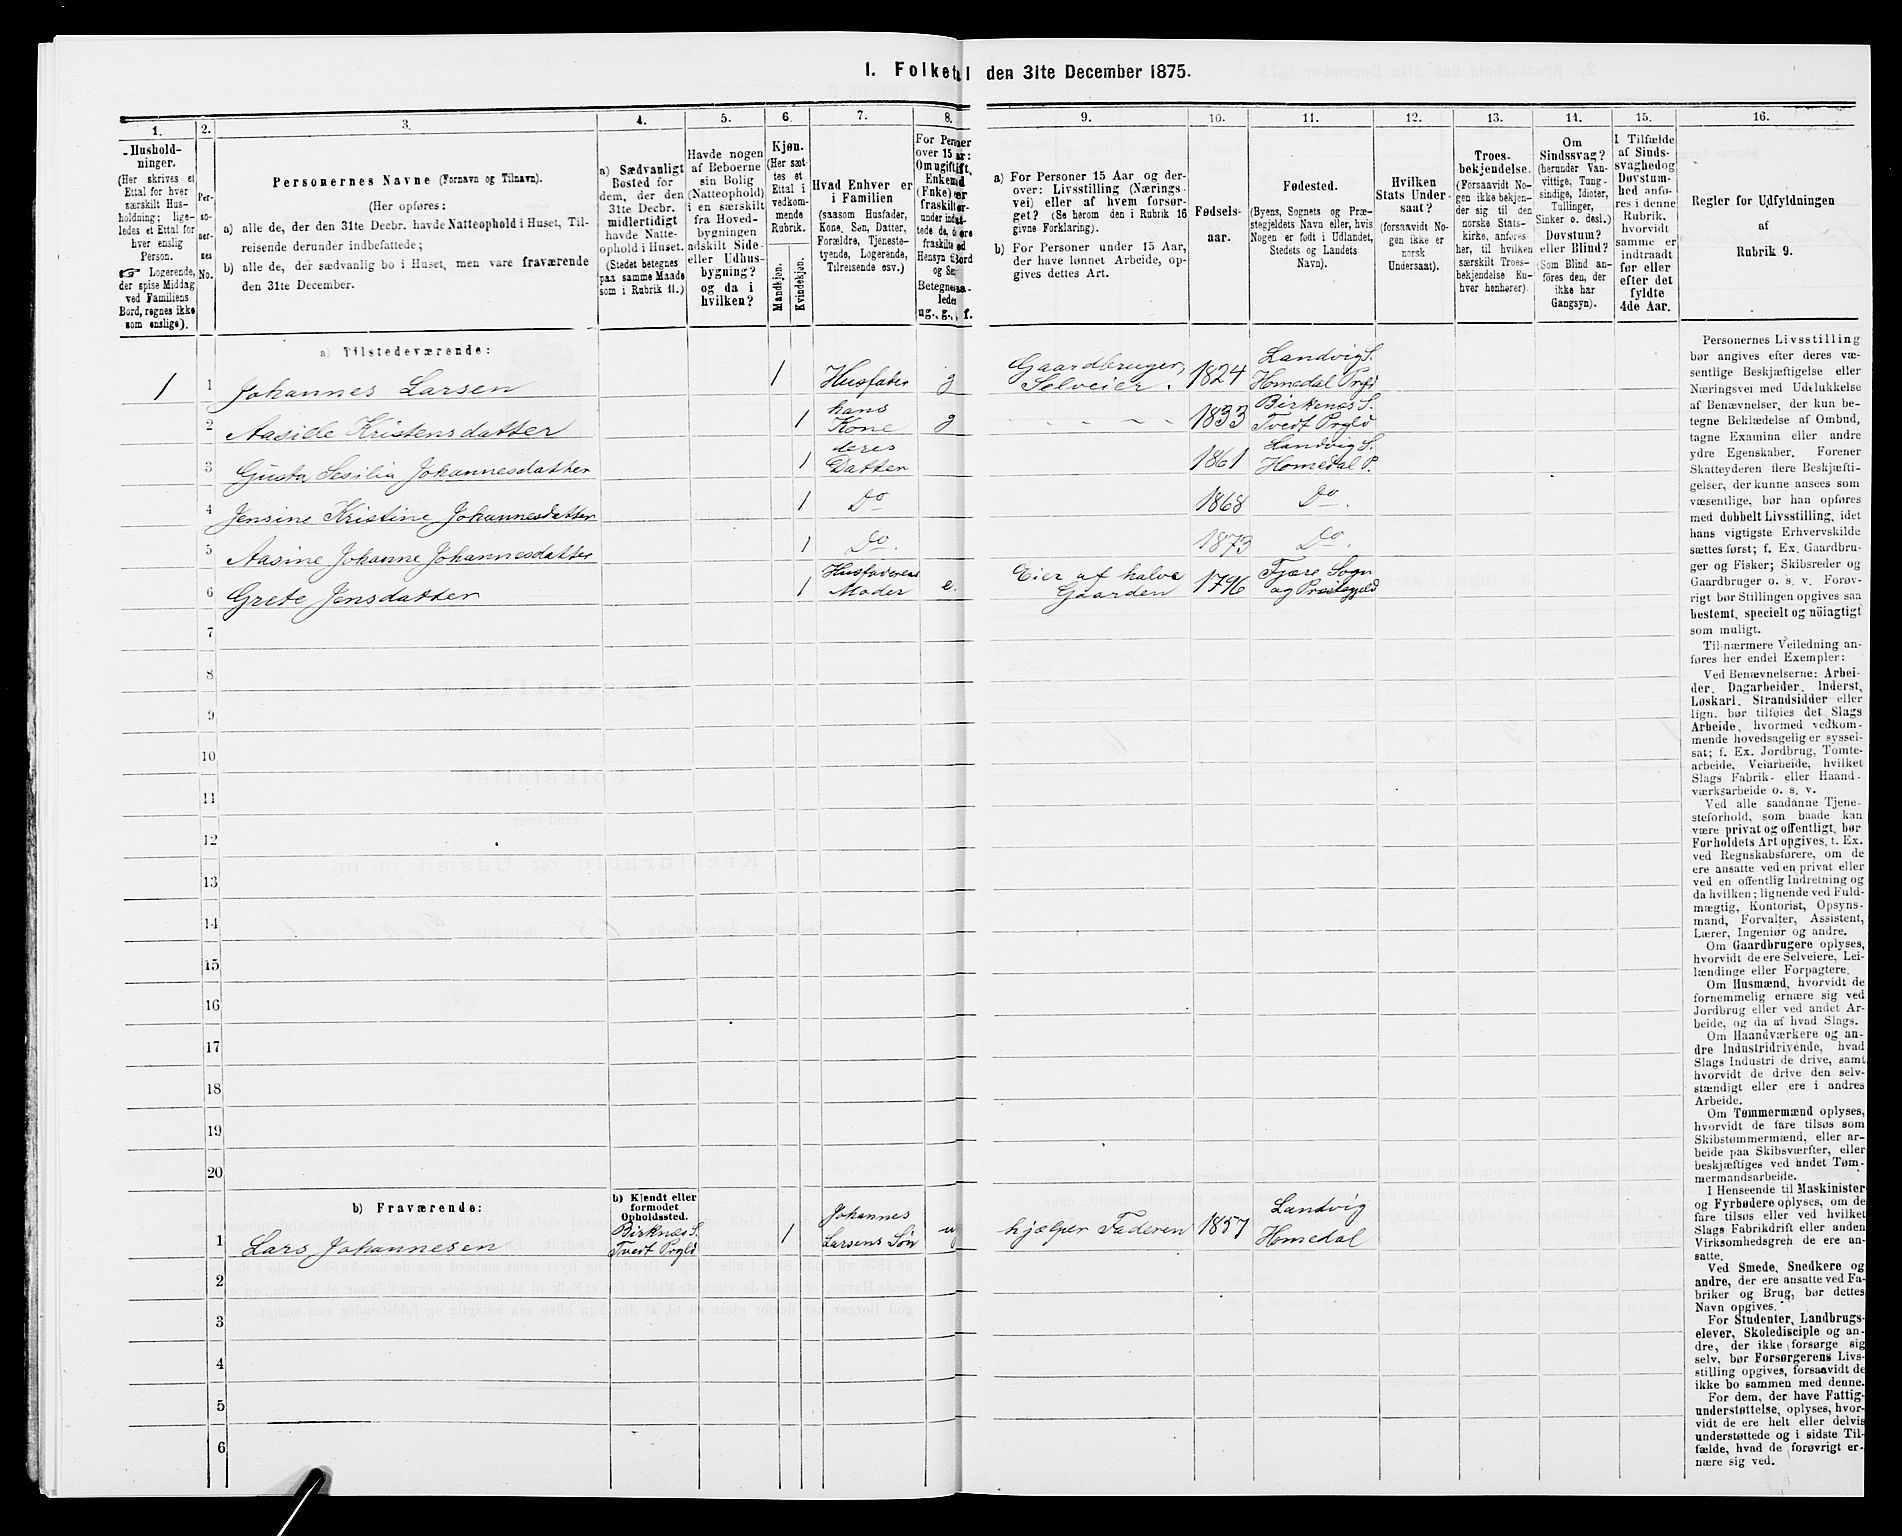 1. Folketal den 31te December 1875.
1.
2.
3.
4.
5.
6.
7.
8.
9.
10.
11.
12.
13.
14.
15.
16.
Hushold-
ninger.
(Her skrives et
Ettal for hver
særskilt Hus-
holdning; lige-
ledes et Ettal for
hver enslig
Person.
☞ Logerende,
der spise Middag
ved Familiens
Bord, regnes ikke
som enslige).
Per-
so-
ner-
nes
No.
Personernes Navne (Fornavn og Tilnavn).
(Her opføres:
a) alle de, der den 31te Decbr. havde Natteophold i Huset, Til-
reisende derunder indbefattede;
b) alle de, der sædvanlig bo i Huset, men vare fraværende
den 31te December.
a) Sædvanligt
Bosted for
dem, der den
31te Decbr.
midlertidigt
havde Natte-
ophold i Huset.
(Stedet betegnes
paa samme Maade
som i Rubrik 11.)
Havde nogen
af Beboerne
sin Bolig
(Natteophold)
i en særskilt
fra Hoved-
bygningen
adskilt Side-
eller Udhus-
bygning?
og da i
hvilken?
Kjøn.
(Her sæt-
tes et
Ettal i
vedkom-
mende
Rubrik.
Mandkjøn.
Kvindekjøn.
Hvad Enhver er
i Familien
(saasom Husfader,
Kone, Søn, Datter,
Forældre, Tjeneste-
tyende, Logerende,
Tilreisende osv.)
a) For Personer 15 Aar og der-
over: Livsstilling (Nærings-
vei) eller af hvem forsør-
get? (Se herom den i Rubrik 16
givne Forklaring).
b) For Personer under 15 Aar,
der have lønnet Arbeide, op-
gives dettes Art.
Fødsels-
aar.
Fødested.
(Byens, Sognets og Præ-
stegjeldets Navn eller, hvis
Nogen er født i Udlandet,
Stedets og Landets
Navn).
Hvilken
Stats Under-
saat?
(forsaavidt No-
gen ikke er
norsk
Undersaat).
Troes-
bekjendelse.
(Forsaavidt No-
gen ikke bekjen-
der sig til den
norske Stats-
kirke, anføres
her, til hvilken
særskilt Troes-
bekjendelse En-
hver henhører).
Om
Sindssvag?
(herunder Van-
vittige, Tung-
sindige, Idioter,
Tullinger,
Sinker o. desl.)
Døvstum?
eller Blind?
(Som Blind an-
føres den, der
ikke har
Gangsyn).
I Tilfælde
af Sinds-
svaghed og
Døvstum-
hed anfø-
res i denne
Rubrik,
hvorvidt
samme er
indtraadt
før eller
efter det
fyldte
4de Aar.
Regler for Udfyldningen
af
Rubrik 9.
a) Tilstedeværende:
1 1 Johannes Larsen 1 Husfader g Gaardbruger, Selveier. 1824 Landvig S. Homedal Prgld
2 Aasille Kristensdatter 1 hans Kone g 1833 Birkenæs S. Tvedt Prgld
3 Gusta Sesilia Johannesdatter 1 deres Datter 1861 Landvig S. Homedal P.
4 Jensine Kristine Johannesdatter 1 Do 1868 Do.
5 Aasine Johanne Johannesdatter 1 Do. 1873 Do.
6 Grete Jensdatter 1 Husfaderens Moder e. Eier af halve Gaarden 1796 Fjære Sogn og Præstegjeld
7
8
9
10
11
12
13
14
15
16
17
18
19
20
b) Fraværende:
b) Kjendt eller
formodet
Opholdssted.
1 Lars Johannesen Birknæs S. Tvedt Prgld 1 Johannes Larsens Søn ug hjælper Faderen 1857 Landvig Homedal
2
3
4
5
6
Personernes Livsstilling
bør angives efter deres væ-
sentlige Beskjæftigelse eller
Næringsvei med Udelukkelse
af Benævnelser, der kun be-
tegne Beklædelse af Ombud,
tagne Examina eller andre
ydre Egenskaber. Forener
Skatteyderen flere Beskjæfti-
gelser, der kunne ansees som
væsentlige, bør han opføres
med dobbelt Livsstilling, idet
hans vigtigste Erhvervskilde
sættes først; f. Ex. Gaardbru-
ger og Fisker; Skibsreder og
Gaardbruger o. s. v. Forøv-
rigt bør Stillingen opgives saa
bestemt, specielt og nöiagtigt
som muligt.
Til nærmere Veiledning an-
føres her endel Exempler:
Ved Benævnelserne: Arbei-
der, Dagarbeider, Inderst,
Løskarl, Strandsidder eller
lign. bør tilføies det Slags
Arbeide, hvormed vedkom-
mende hovedsagelig er syssel-
sat; f. Ex. Jordbrug, Tomte-
arbeide, Veiarbeide, hvilket
Slags Fabrik- eller Haand-
værksarbeide o. s. v.
Ved alle saadanne Tjene-
steforhold, som baade kan
være privat og offentligt, bør
Forholdets Art opgives, t. Ex.
ved Regnskabsførere, om de
ere ansatte ved en privat eller
ved en offentlig Indretning og
da hvilken; lignende ved Fuld-
mægtig, Kontorist, Opsyns-
mand, Forvalter, Assistent,
Lærer, Ingeniør og andre.
Om Gaardbrugere oplyses,
hvorvidt de ere Selveiere, Lei-
lændinge eller Forpagtere.
Om Husmænd, hvorvidt de
fornemmelig ernære sig ved
Jordbrug eller ved andet Ar-
beide, og da af hvad Slags.
Om Haandværkere og an-
dre Industridrivende, hvad
Slags Industri de drive, samt
hvorvidt de drive den selv-
stændigt eller ere i andres
Arbeide.
Om Tømmermænd oplyses,
hvorvidt de fare tilsøs som
Skibstømmermænd, eller ar-
beide paa Skibsværfter, eller
beskjæftiges ved andet Tøm-
mermandsarbeide.
I Henseende til Maskinister
og Fyrbødere oplyses, om de
fare tilsøs eller ved hvilket
Slags Fabrikdrift eller anden
Virksomhedsgren de ere an-
satte.
Ved Smede, Snedkere og
andre, der ere ansatte ved Fa-
briker og Brug, bør dettes
Navn opgives.
For Studenter, Landbrugs-
elever, Skoledisciple og an-
dre, der ikke forsørge sig
selv, bør Forsørgerens Livs-
stilling opgives, forsaavidt de
ikke bo sammen med denne.
For dem, der have Fattig-
understøttelse, oplyses, hvor-
vidt de ere helt eller delvis
understøttede og i sidste Til-
fælde, hvad de forøvrigt er-
nære sig ved.